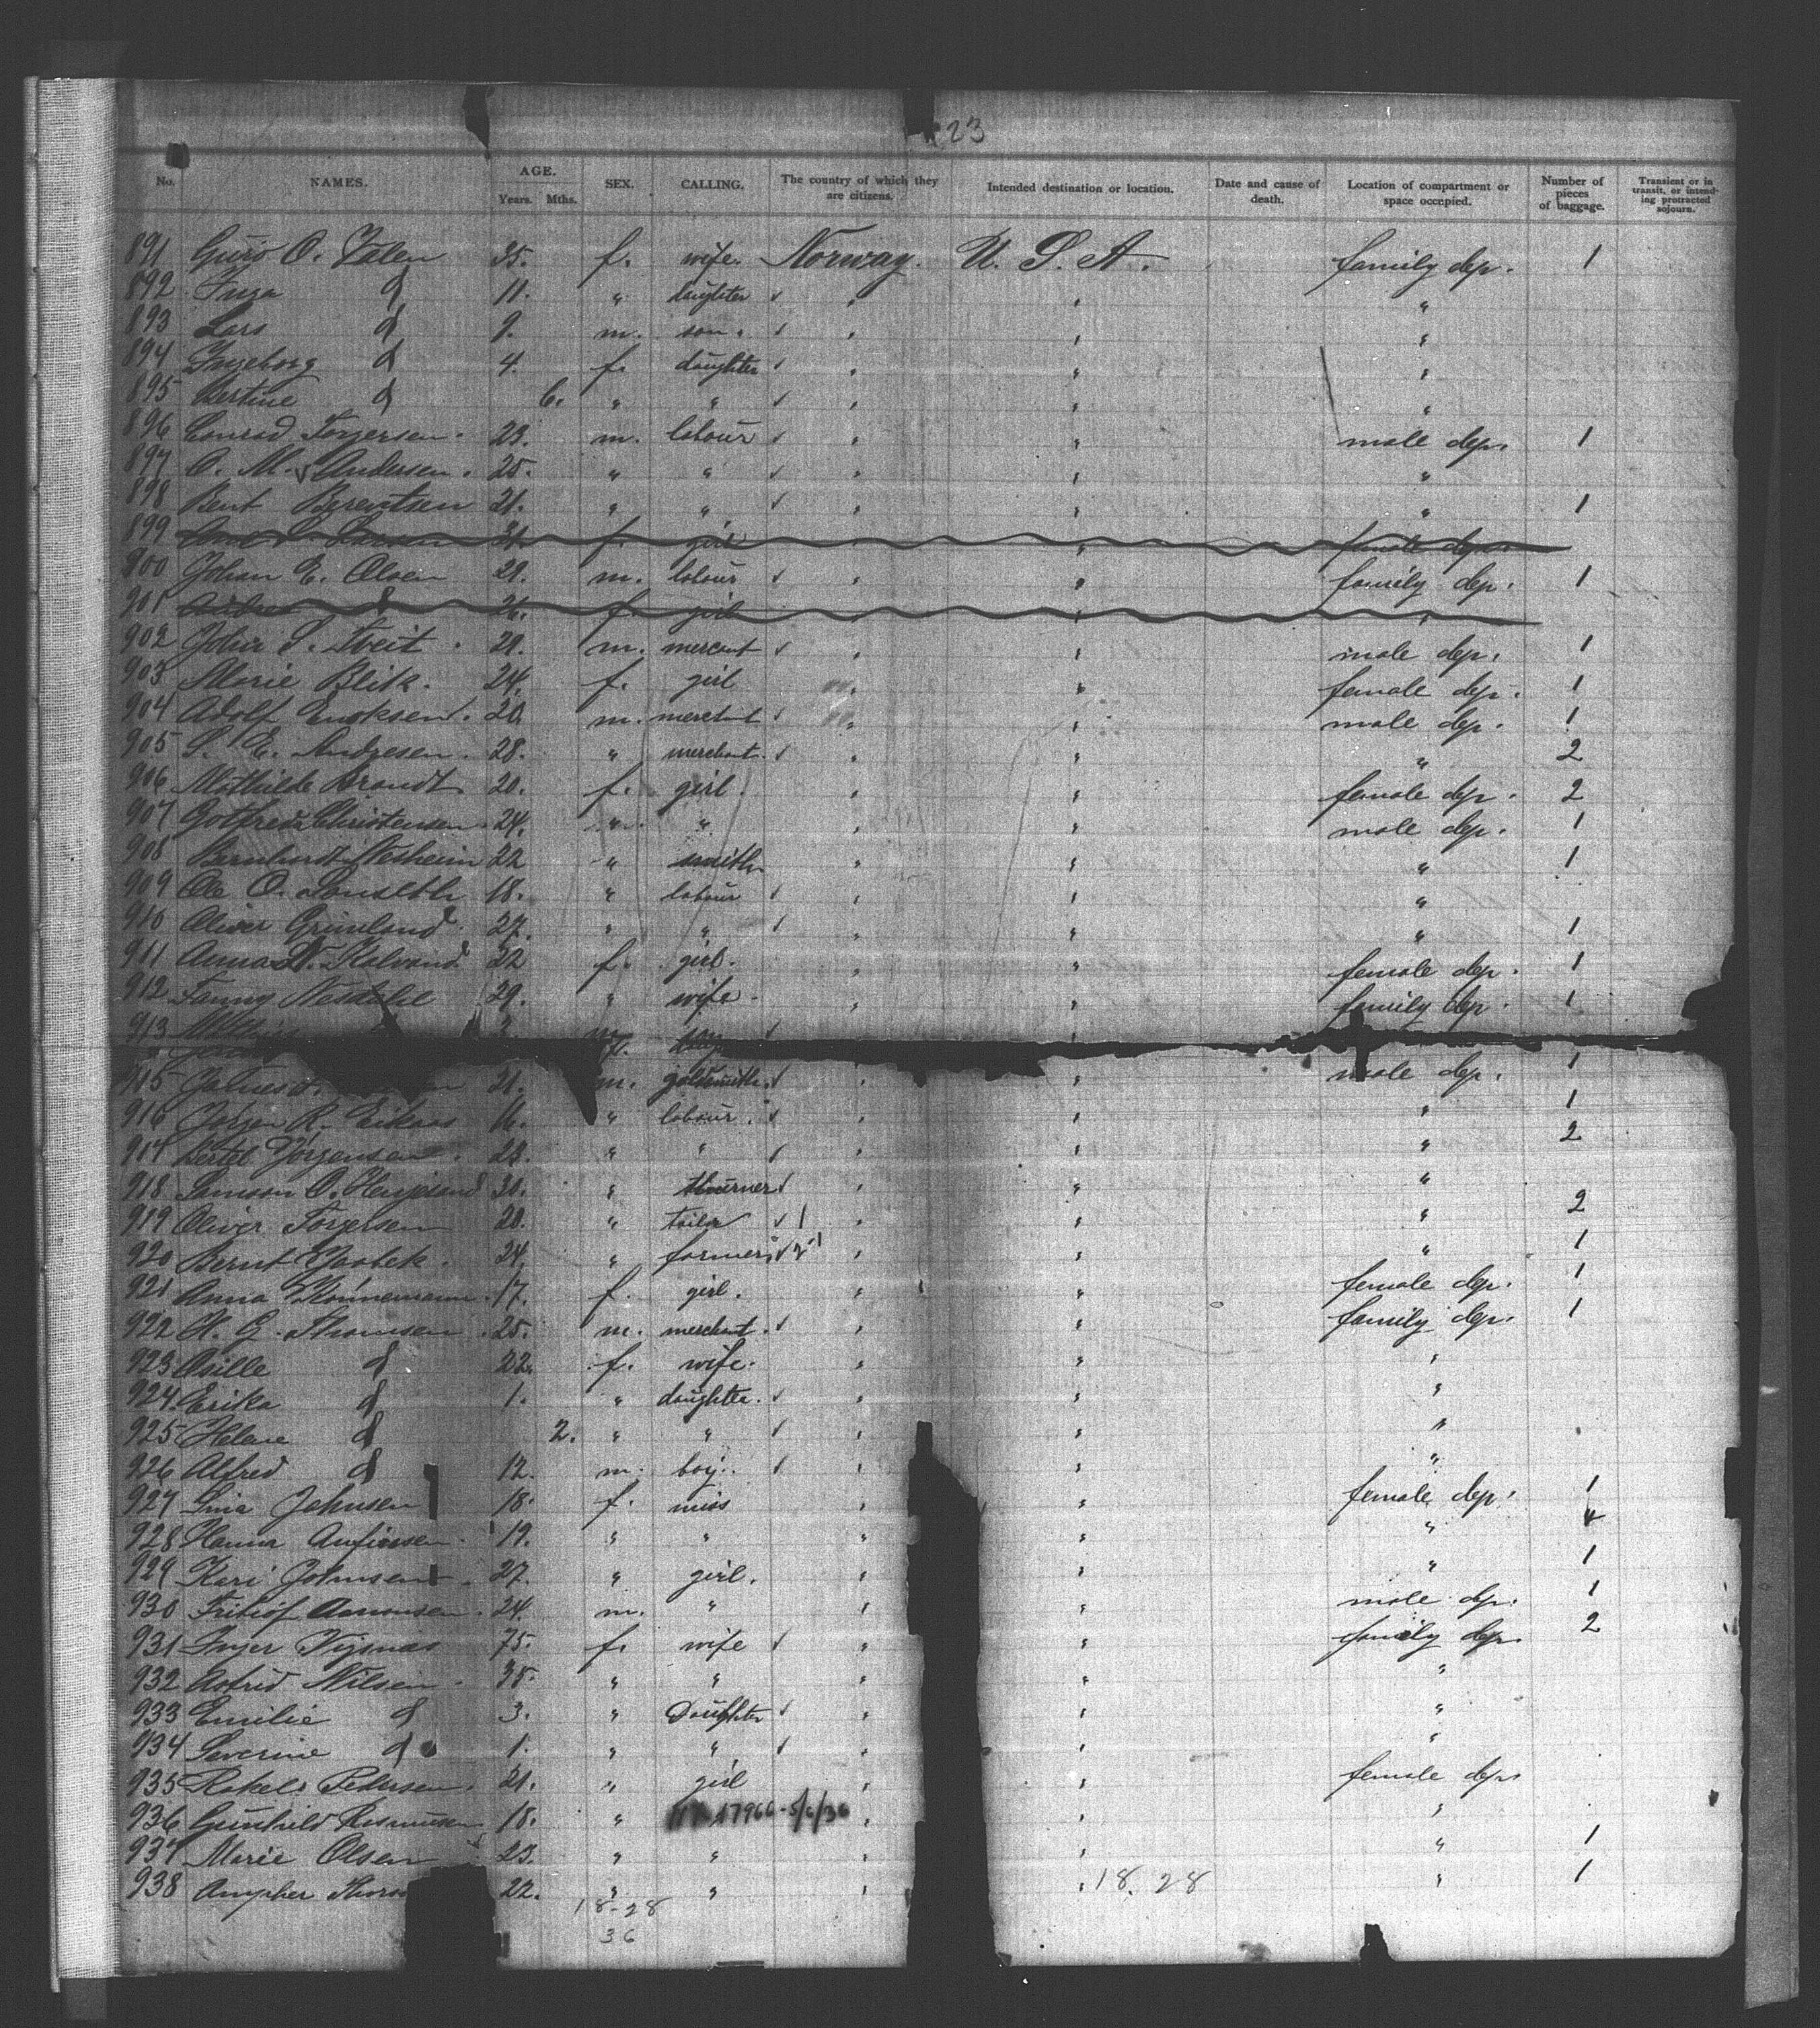 23
No. NAMES. AGE. Years. Mths. SEX. CALLING. The country of which they are citizens. Intended destination or location. Date and cause of death. Location of compartment or space occupied. Number of pieces of baggage. Transient or in transit, or intending protracted sojourn.
891 Guro O. Valen 35. f. wife. Norway. U. S. A. family dep. 1
892 Inga d 11. " daughter " " "
893 Lars d 9. m. son. " " "
894 Ingeborg d 4. f. daughter " " "
895 Bertine d 6. " " " " "
896 Conrad Torgersen. 23. m. labour " " male dep. 1
897 A. M. Andersen. 25. " " " " "
898 Bent Berentsen 21. " " " " " 1
899 Larsen 31. f. girl " " female dep.
900 Johan E. Olsen 29. m. labour " " family dep. 1
901 d 26. f. girl " " "
902 John S. Tveit. 29. m. mercant " " male dep. 1
903 Marie Blik. 24. f. girl " " female dep. 1
904 Adolf Enoksen. 20. m. merchant " " male dep. 1
905 S. E. Andresen. 28. " merchant. " " " 2
906 Mathilde Brandt 20. f. girl. " " female dep. 2
907 Gotfred Christensen. 24. m. " " " male dep. 1
908 Bernhardt Nesheim 22 " smith " " " 1
909 Ole O. 18. " labour " " "
910 Oliver Grimland. 27. " " " " " 1
911 Anna N. Kalvand. 22 f. girl. " " female dep. 1
912 Fanny Nesdahl 29. " wife. " " family dep. 1
913 m. son
915 21. m. goldsmith. " " male dep. 1
916 Jørgen R. Eikaas 16. " labour. " " " 1
917 Bertel Jørgensen. 23. " " " " " 2
918 Samson O. 30. " thurner " " "
919 Oliver Torgersen 20. " tailor " " " 2
920 Bernt 24. " farmer " " " 1
921 Anna 17. f. girl. " " female dep. 1
922 H. G. Thomsen. 25. m. merchant. " " family dep. 1
923 Osille d 22. f. wife. " " "
924 Erika d 1. " daughter. " " "
925 Helene d 2. " " " " "
926 Alfred d 12. m. boy. " " "
927 Lina Johnsen 18. f. miss " " female dep. 1
928 Hanna Anfinsen. 19. " " " " " 4
929 Kari Johnsen. 27. " girl. " " " 1
930 Fritiof Aamonsen. 24. m. " " " male dep. 1
931 Inger 75. f. wife " " family dep. 2
932 Astrid Nilsen. 35. " " " " "
933 Emilie d 3. " Daughter " " "
934 Severine d 1. " " " " "
935 Rakel Pedersen. 21. " girl " " female dep.
936 Gunhild Rasmusen 18. " 17966 - 5/6/36 " " "
937 Marie Olsen 23. " " " " " 1
938 22. " " " " 18. 28 " 1
18-28
36